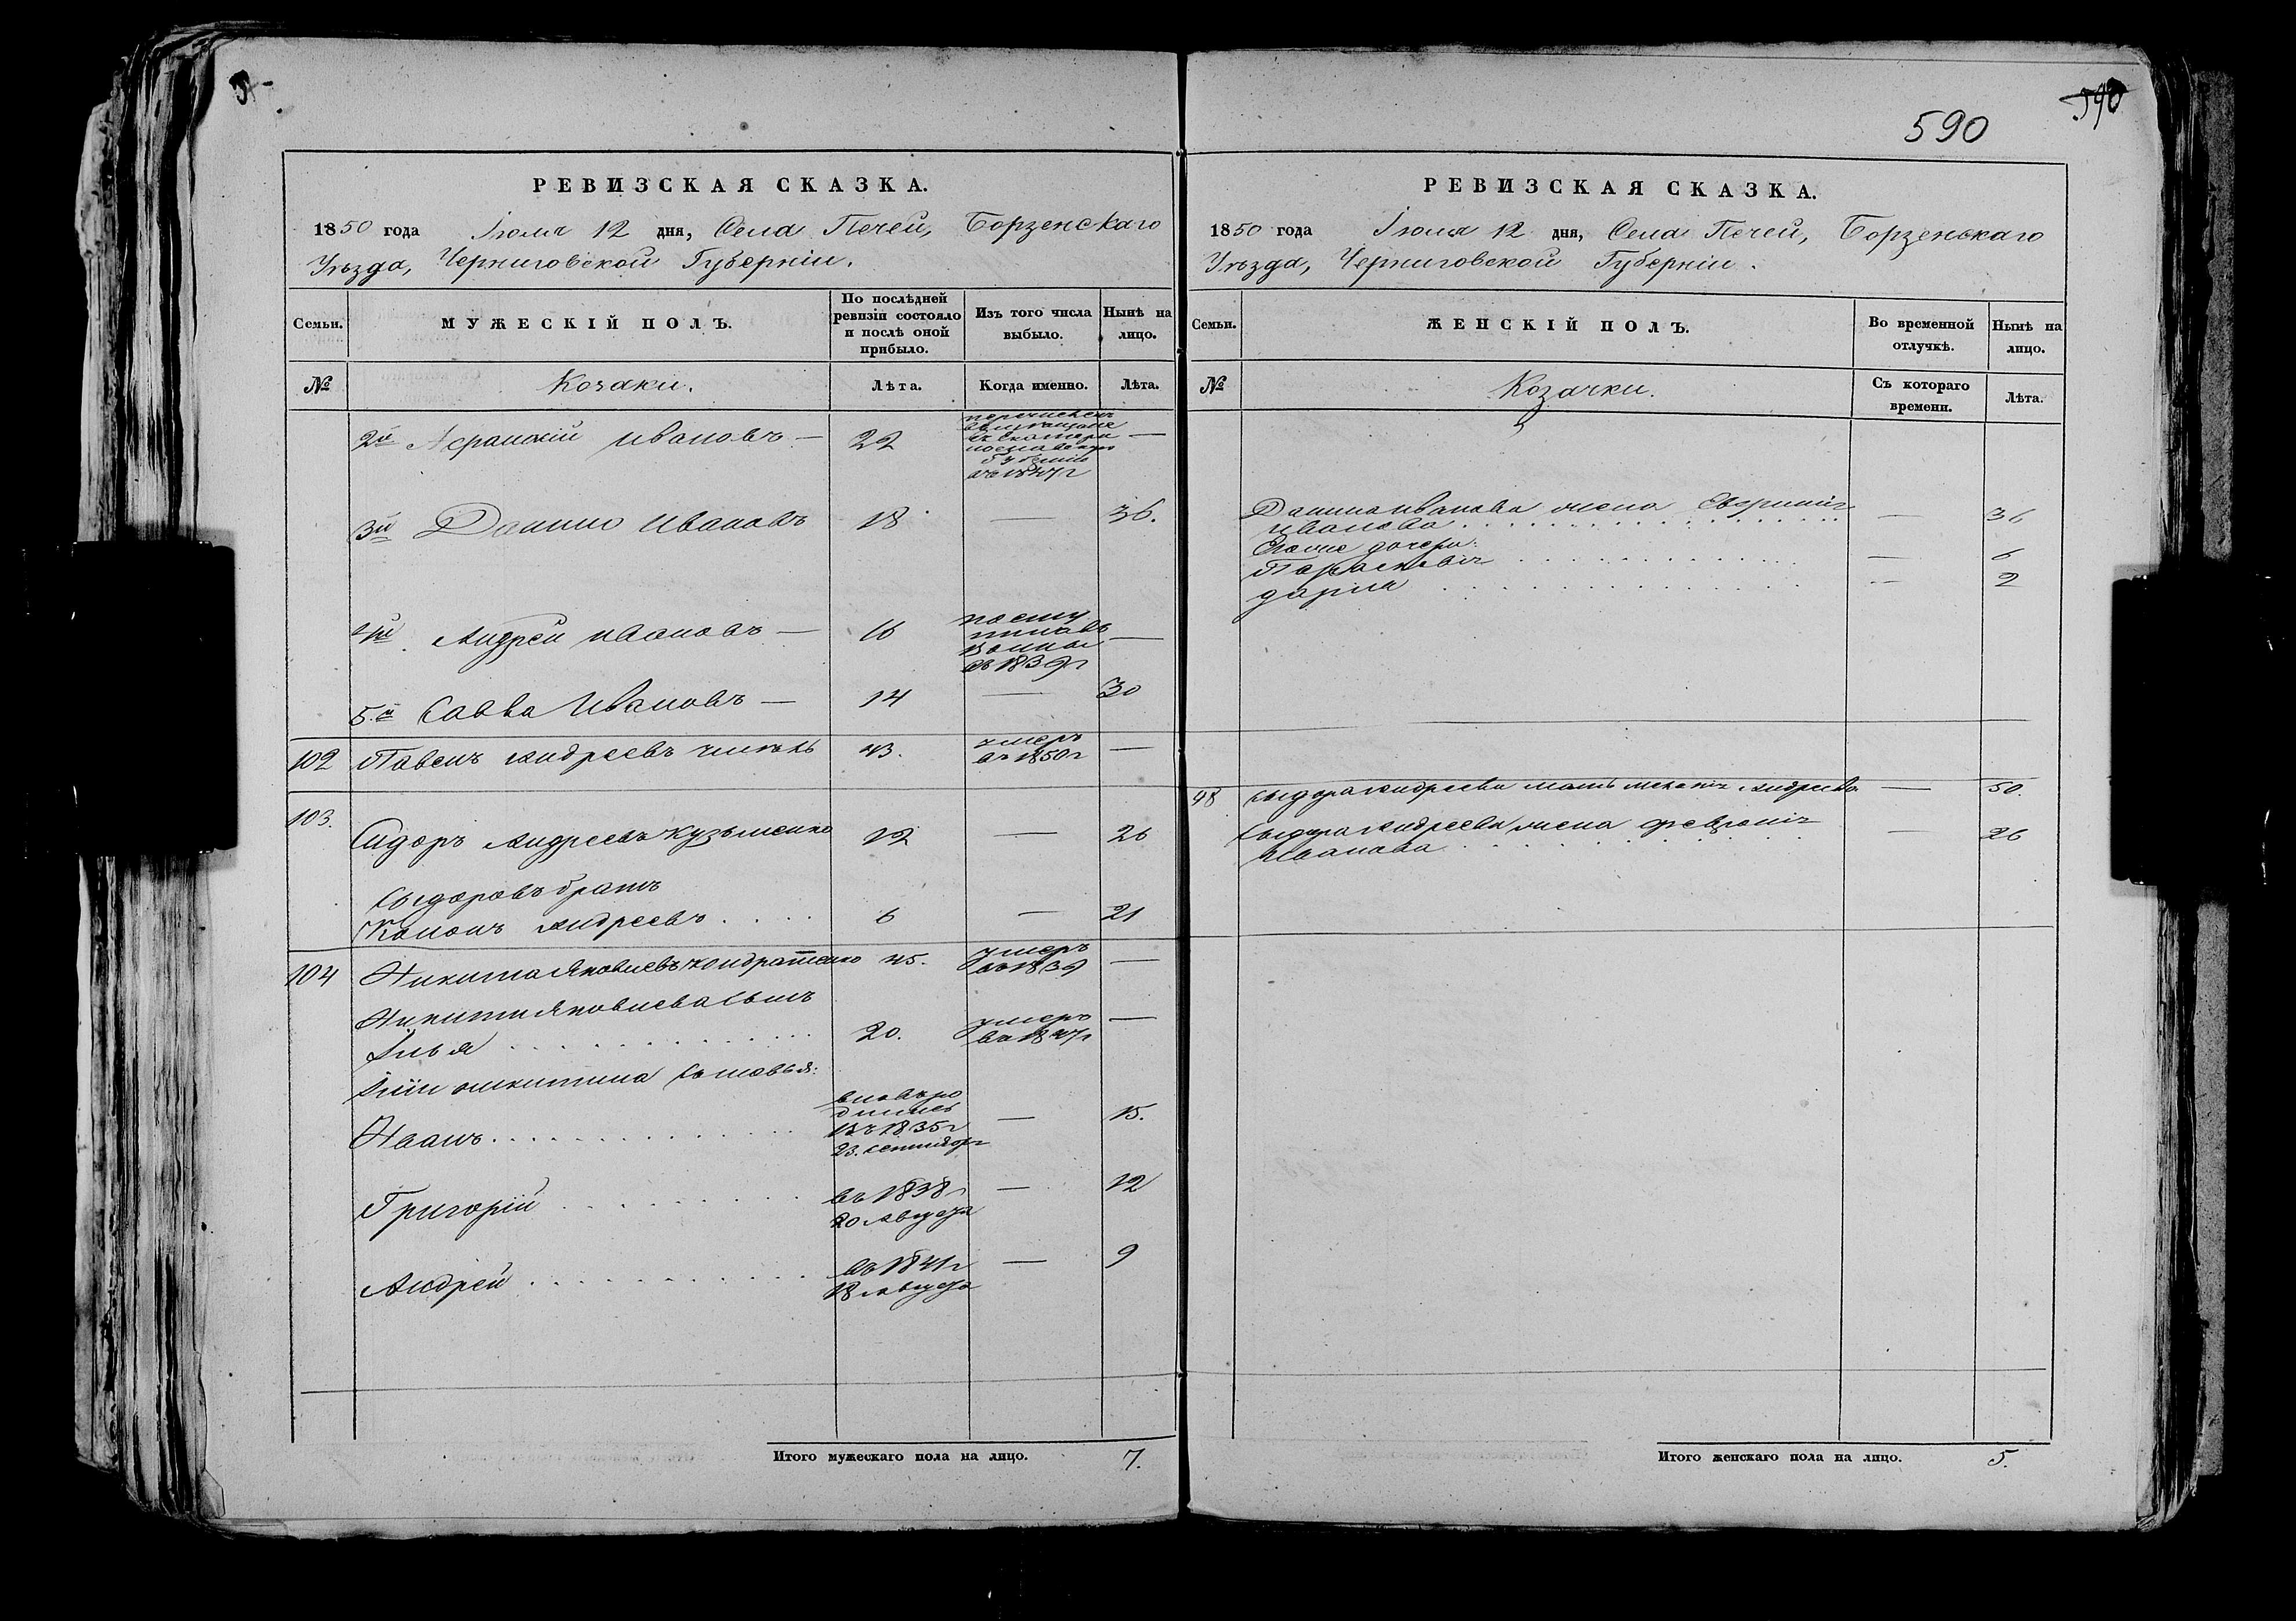 590
590
РЕВИЗСКАЯ СКАЗКА.
1850 года Іюля 12 дня, Села Печей, Борзенскаго
Уѣзда, Черниговской Губерніи.
Семьи.
МУЖЕСКІЙ ПОЛЪ.
По послѣдней ревизіи состояло и послѣ оной прибыло.
Изъ того числа выбыло.
Нынѣ на лицо.
№
Козаки.
Лѣта.
Когда именно.
Лѣта.
2й Ивановъ — 22
въ 1847г —
3й Данило Ивановъ 18 — 36.
4й Андрей Ивановъ — 16
въ 1839г —
5.й Савва Ивановъ — 14 — 30
102 Павелъ Андреевъ 43. умеръ —
въ 1850г
103.
Сидоръ Андреевъ Кузьменко 12 — 26
Сыдоровъ братъ
Кононъ Андреевъ . . . . 6 — 21
104 Никита Яковлевъ Кондратенко 45. умеръ —
въ 1839
Никиты Яковлева сынъ
Илья . . . . . . . . . . . . 20. умеръ —
въ 1847г
Ильи Никитина сыновья:
вновь ро
дились
Иванъ . . . . . . . . . . . . въ 1835г — 15.
23. сентября
Григорій . . . . . . . . въ 1838г — 12
20 Августа
Андрей . . . . . . . . . . . въ 1841г — 9
18 Августа
Итого мужескаго пола на лицо. 7.
РЕВИЗСКАЯ СКАЗКА.
1850 года Іюля 12 дня, Села Печей, Борзенскаго
Уѣзда, Черниговской Губерніи.
Семьи.
ЖЕНСКІЙ ПОЛЪ.
Во временной отлучкѣ.
Нынѣ на лицо.
№
Козачки.
Съ котораго времени.
Лѣта.
Данила Иванова жена
Иванова . . . . . . . . . . . . — 36
дочери:
Парасковія . . . . . . . . . . — 6
Дарія . . . . . . . . . . . . — 2
98 Сыдора Андреева мать Андреева — 50.
Сыдора Андреева жена Февронія
Иванова . . . . . . . . . — 26
Итого женскаго пола на лицо. 5.